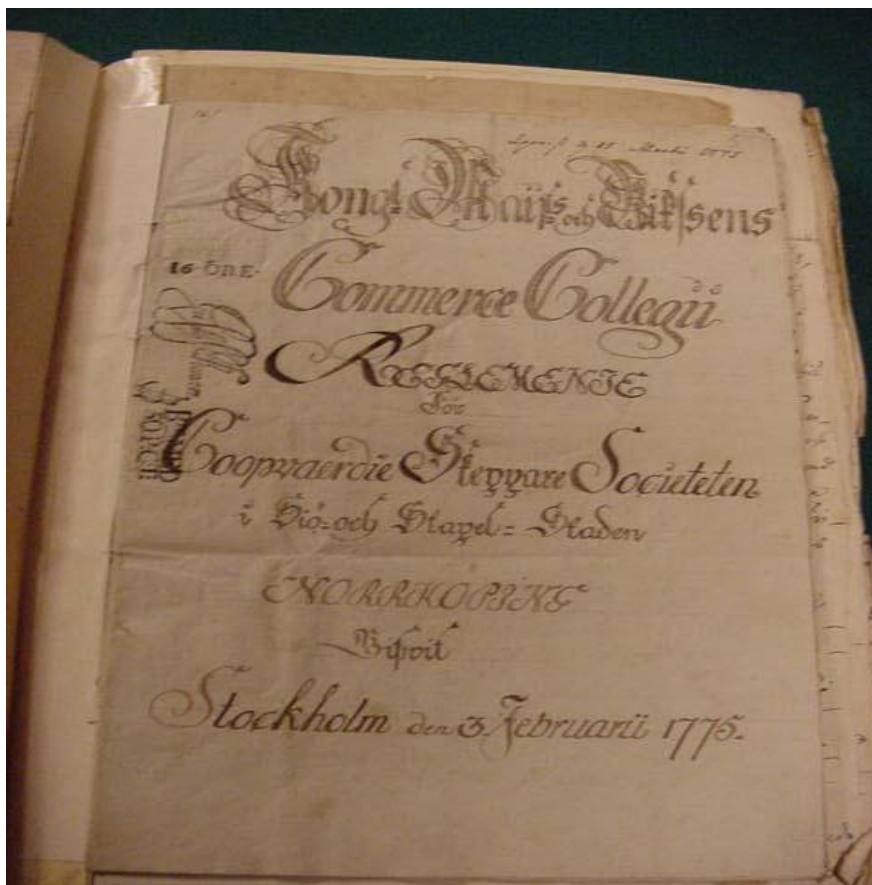 d. 11 Martii 1775
Kongl. Maijts och Riksens
16 ÖRE.
Commerce Collegii
REGLEMENTE
För
Coopvaerdie Skeppare Societeten
i Siö- och Stapel-Staden
NORRKÖPING
Gifvit
Stockholm den 3. Februarii 1775.